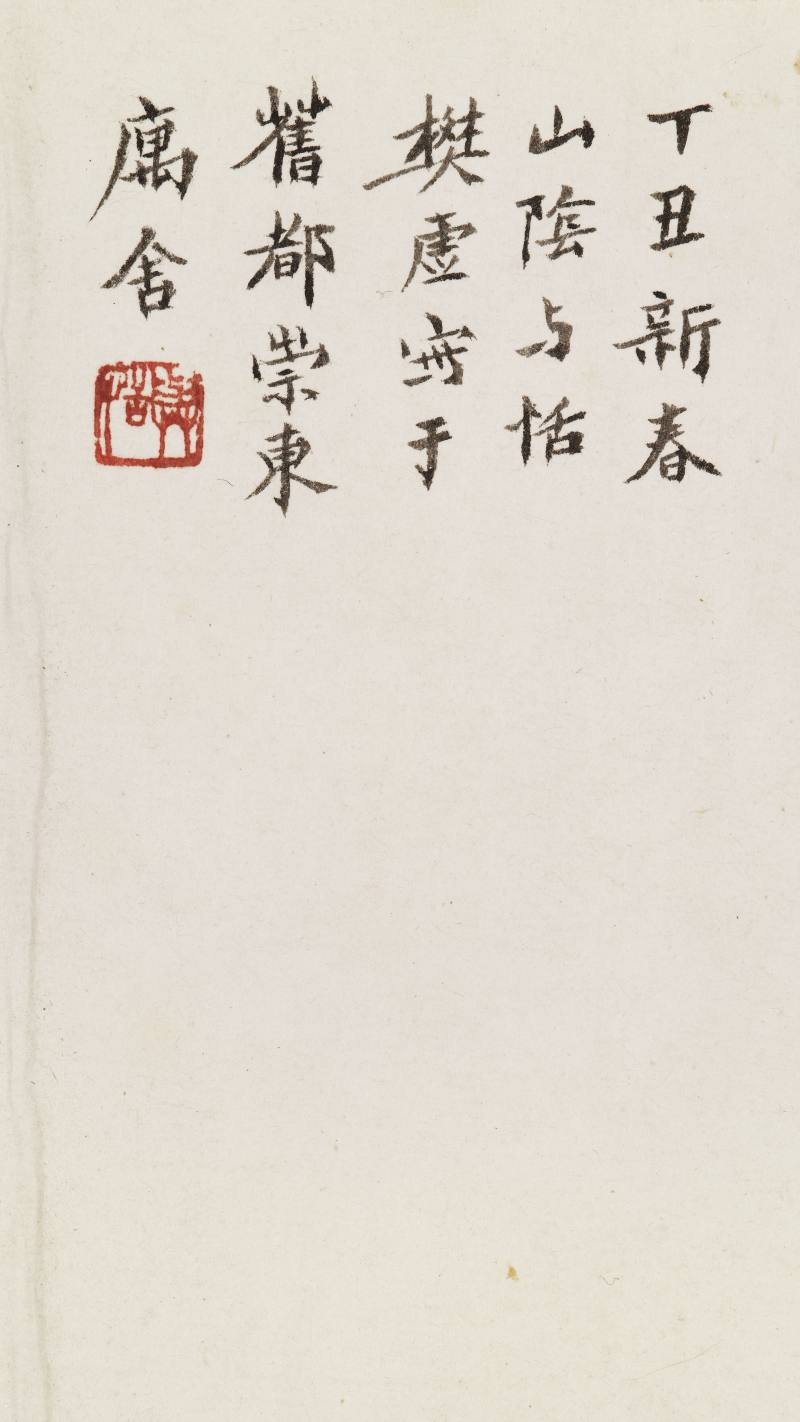 丁丑新春
山陰与恬
樊虚寫于
舊都崇東
庽舍